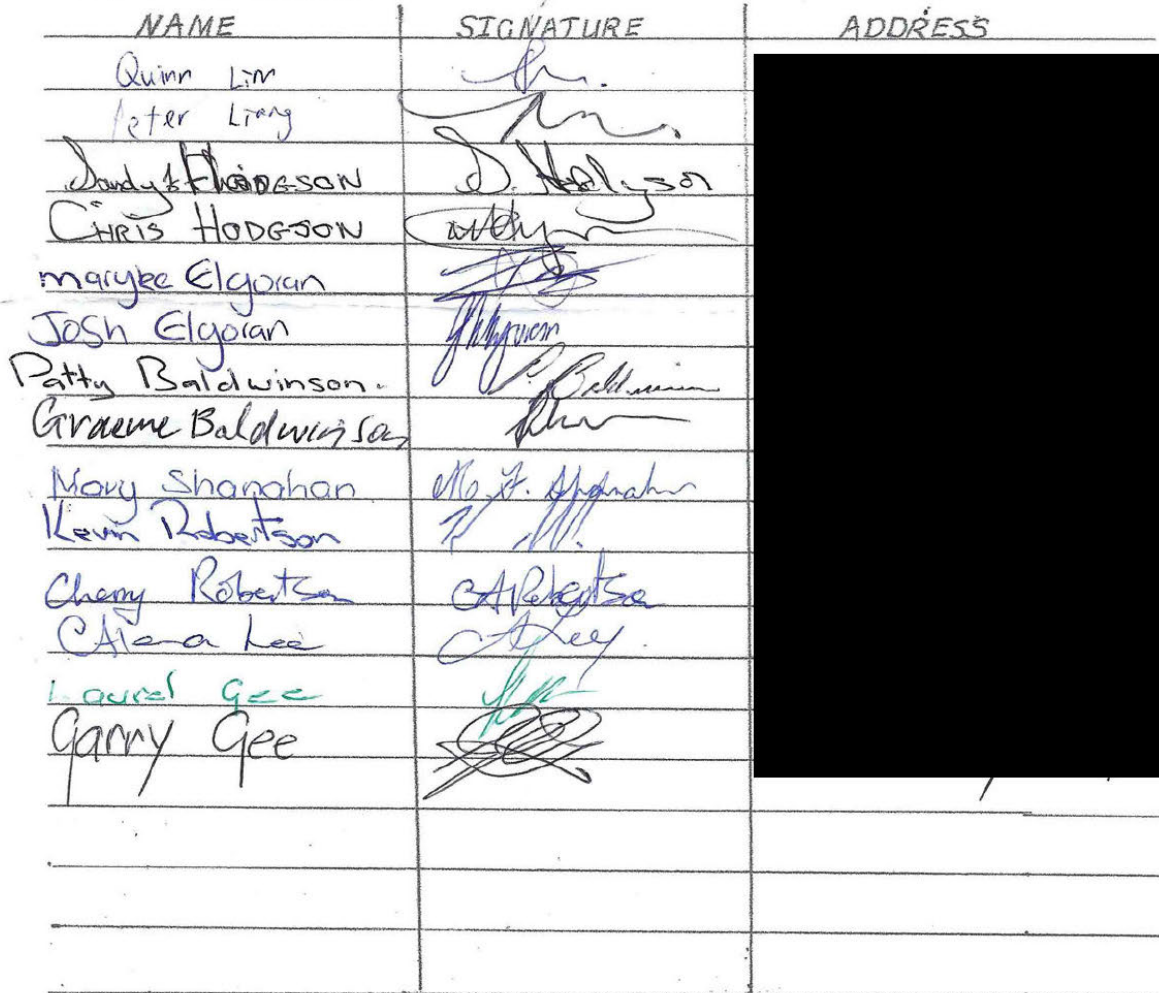 NAME SIGNATURE ADDRESS
Quinn Lin
Peter Liang
Sandy HODGSON D. Hodgson
CHRIS HODGSON
marykee Elgoran
Josh Elgoran
Patty Baldwinson. P. Baldwinson
Graeme Baldwinson
Mary Shanahan M. F. Shanahan
Kevin Robertson
Cherry Robertson CA Robertson
Lee A Lee
Laurel Gee
Garry Gee